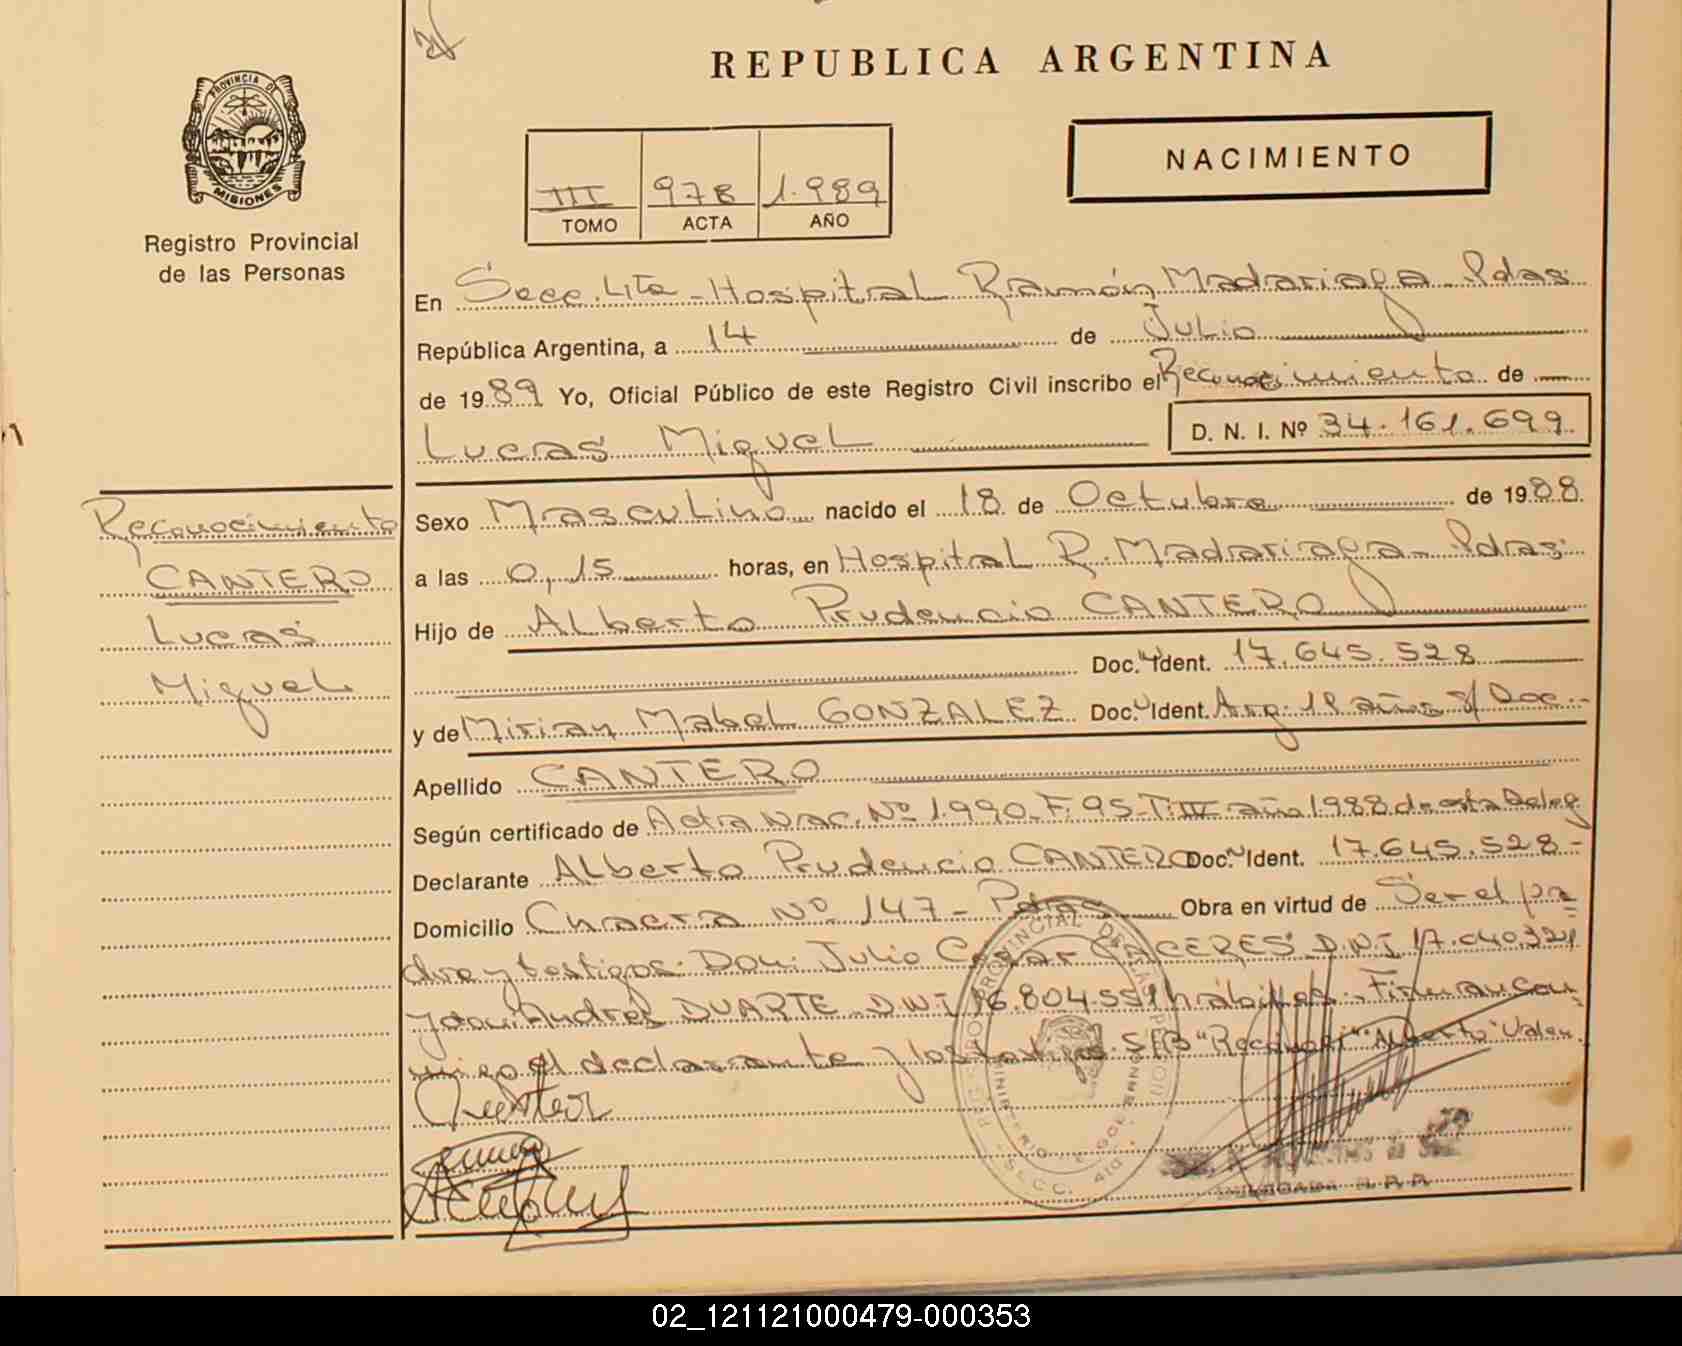 REPUBLICA ARGENTINA
PROVINCIA DE
MISIONES
Registro Provincial
de las Personas
NACIMIENTO
III 978 1.989
TOMO ACTA AÑO
En Secc. 4ta - Hospital Ramón Madariaga - Pdas.
República Argentina, a 14 de Julio
de 1989 Yo, Oficial Público de este Registro Civil inscribo el Reconocimiento de
Lucas Miguel D. N. I. Nº 34.161.699
Reconocimiento
CANTERO
Lucas
Miguel
Sexo Masculino nacido el 18 de Octubre de 1988
a las 0,15 horas, en Hospital R. Madariaga - Pdas.
Hijo de Alberto Prudencio CANTERO
Doc. Ident. 17.645.528
y de Mirian Mabel GONZALEZ Doc. Ident. Arg. 18 años s/ Doc.-
Apellido CANTERO
Según certificado de Acta Nac. Nº 1.990 - F. 95 - T. III año 1988 de esta Deleg
Declarante Alberto Prudencio CANTERO Doc. Ident. 17.645.528-
Domicilio Chacra Nº 147 - Pdas Obra en virtud de Ser el pa
dre y testigos: Don: Julio Cesar CACERES D.N.I 17.040.321
y don: Andres DUARTE D.N.I 16.804.551 hábiles. Firman con
migo el declarante y los testigos. S/B "Reconoci" "Alberto" Valen.
DELEGADA R. P. P.
02_121121000479-000353